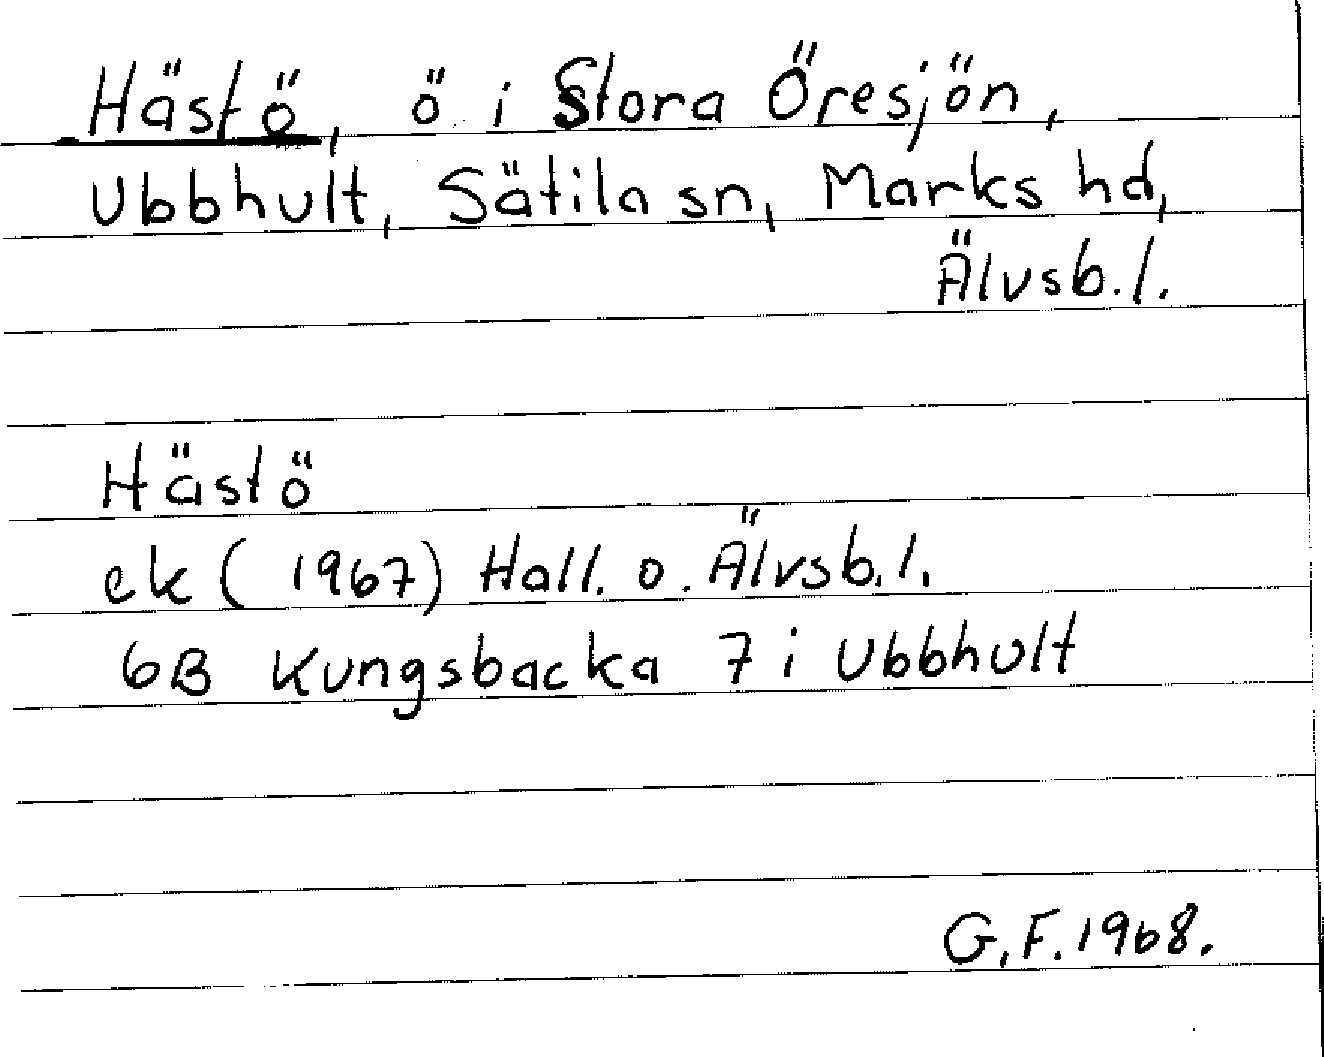 Hästö, ö i Stora Öresjön,
Ubbhult, Sätila sn, Marks hd,
Älvsb.l.
Hästö
ek (1967) Hall. o. Älvsb.l.
6B Kungsbacka 7 i Ubbhult
G.F. 1968.